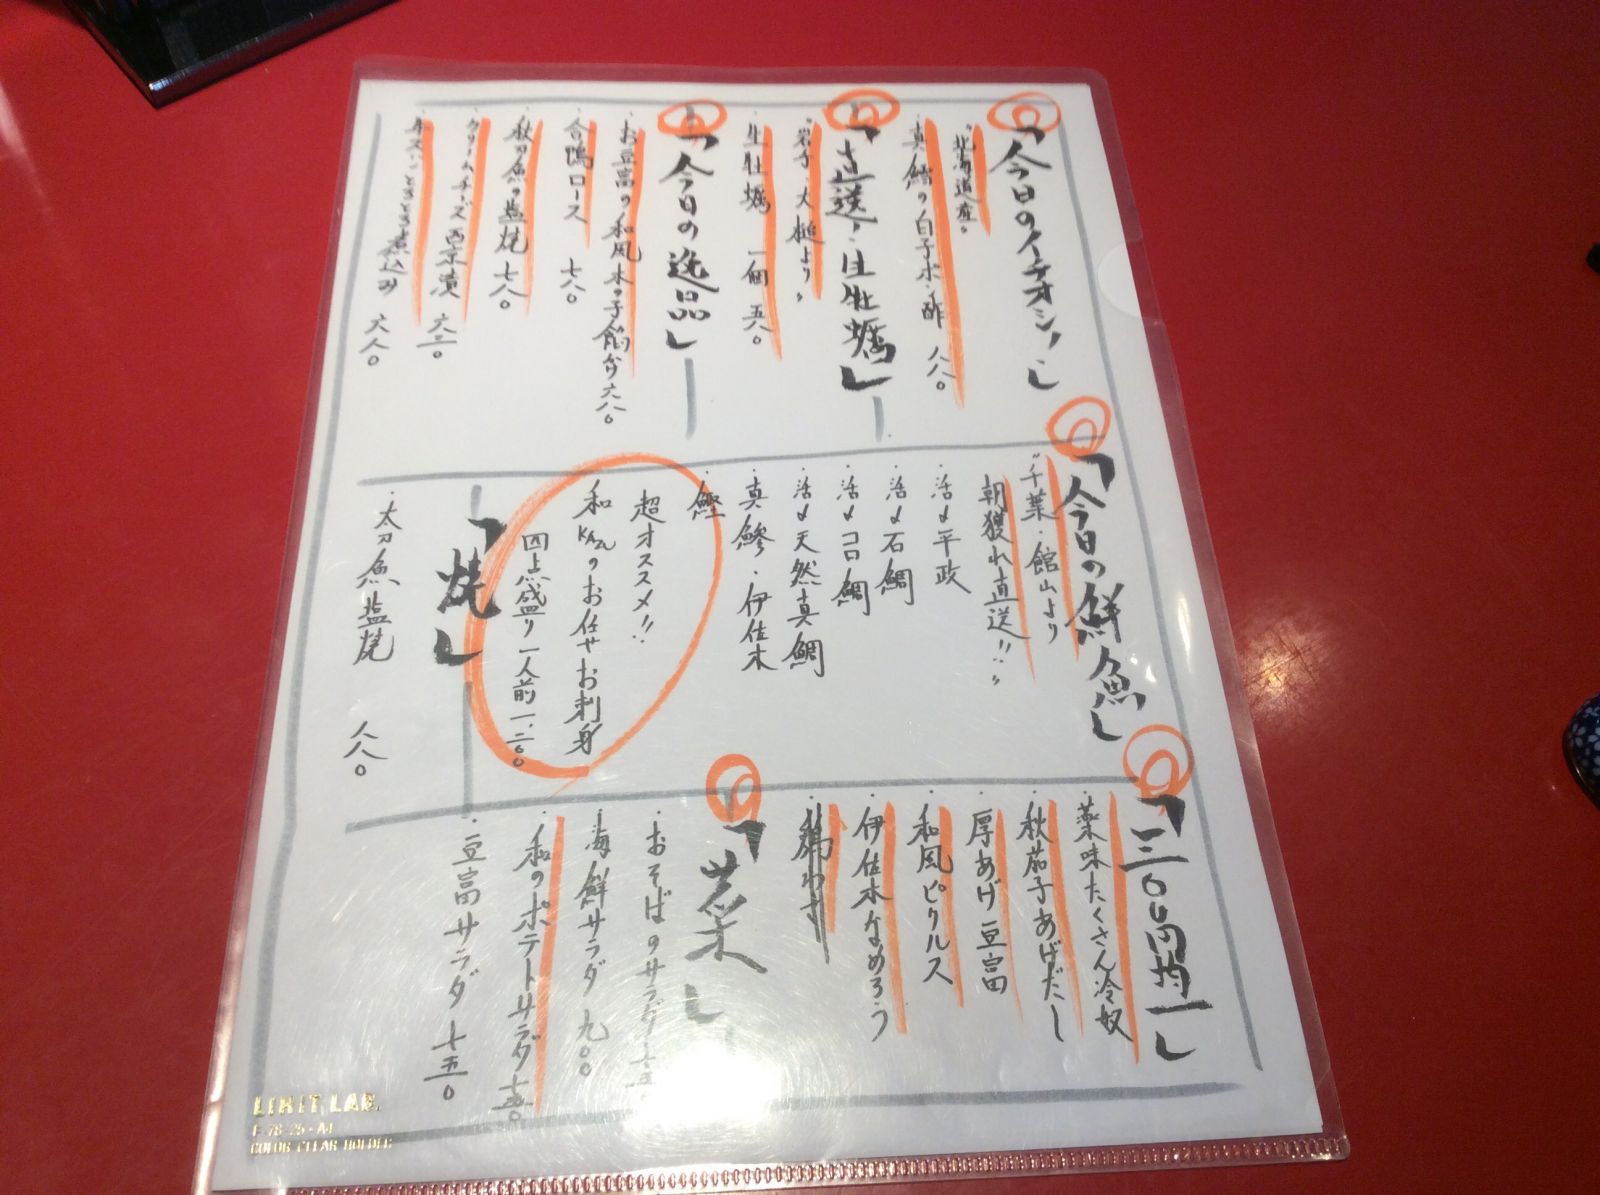 「今日のイチオシ！」
"北海道産"
真鱈の白子ポン酢 八八〇
「直送！生牡蠣」
"岩手・大槌より"
生牡蠣 一個 五八〇
「今日の逸品」
・お豆富の和風木の子餡かけ 六八〇
・合鴨ロース 七八〇
・秋刀魚の塩焼 七八〇
・クリームチーズ西京漬
・牛スジとろとろ煮込み 六八〇
「今日の鮮魚」
"千葉・館山より
朝獲れ直送!!"
・活〆平政
・活〆石鯛
・活〆コロ鯛
・活〆天然真鯛
・真鯵・伊佐木
・鰹
超オススメ!!
和KAZUのお任せお刺身
四点盛り一人前 一.二〇〇
「焼」
・太刀魚塩焼 八八〇
「三〇〇円均一」
・薬味たくさん冷奴
・秋茄子あげだし
・厚あげ豆富
・和風ピクルス
・伊佐木なめろう
「菜」
・おそばのサラダ
・海鮮サラダ 九〇〇
・和のポテトサラダ
・豆富サラダ 七五〇
LIHIT LAB.
F-78 25-A4
COLOR CLEAR HOLDER